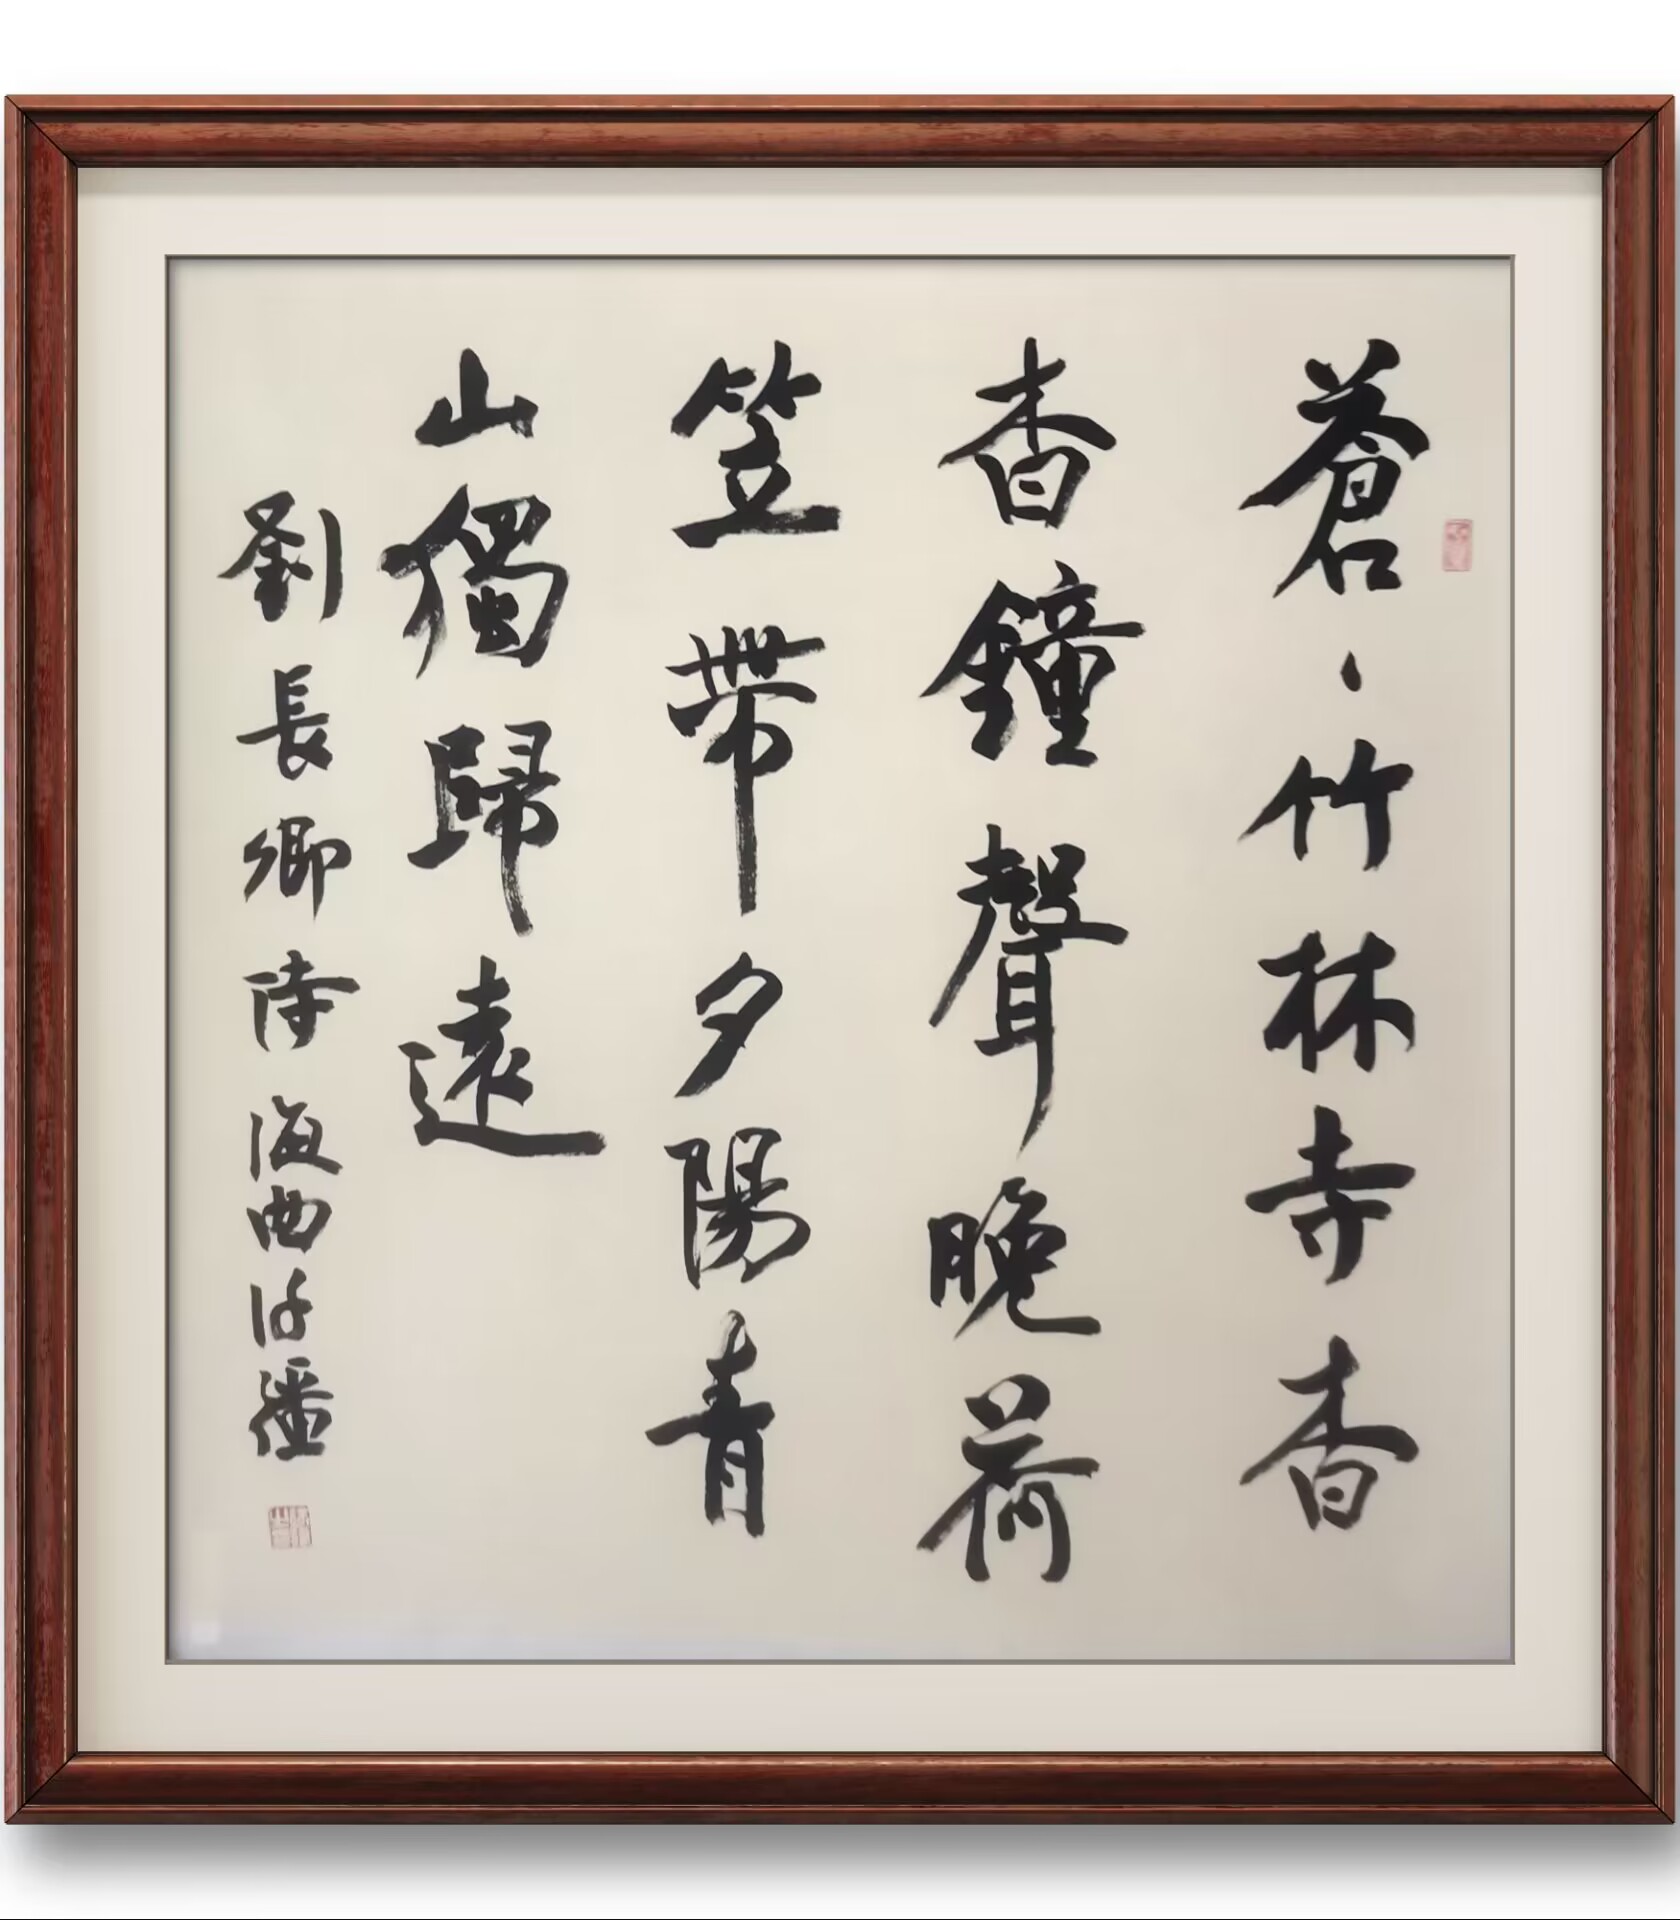 蒼、竹林寺杳
杳鐘聲晚荷
笠帶夕陽青
山獨歸遠
劉長卿詩 海曲